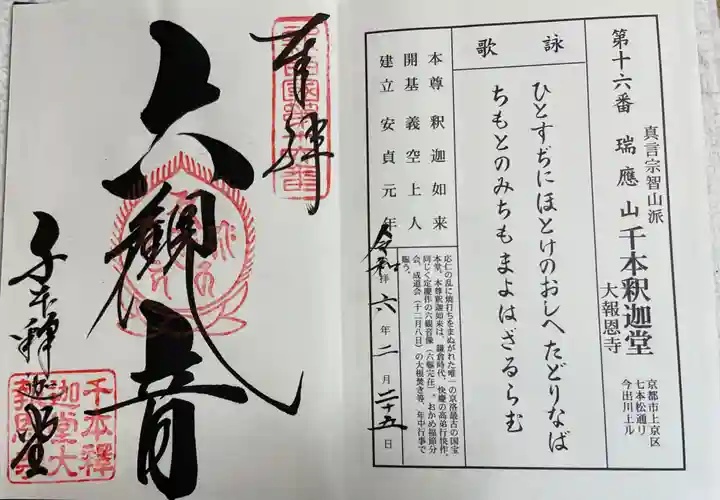 第十六番 瑞應山千本釈迦堂
真言宗智山派
大報恩寺
京都市上京区
七本松通り
今出川上ル
詠歌
ひとすぢにほとけのおしへたどりなば
ちもとのみちもまよはざるらむ
本尊 釈迦如来
開基 義空上人
建立 安貞元年
応仁の乱に焼打ちをまぬがれた唯一の京洛最古の国宝
本堂、本尊釈迦如来は、鎌倉時代、快慶の高弟行快作、
同じく定慶作の六観音像(六軀完在)。おかめ福節分
会、成道会(十二月八日)の大根焚き等、年中行事で
賑う。
令和六年二月二十五日
奉拝
六観音
千本釋迦堂
千本釋
迦堂大
報恩寺